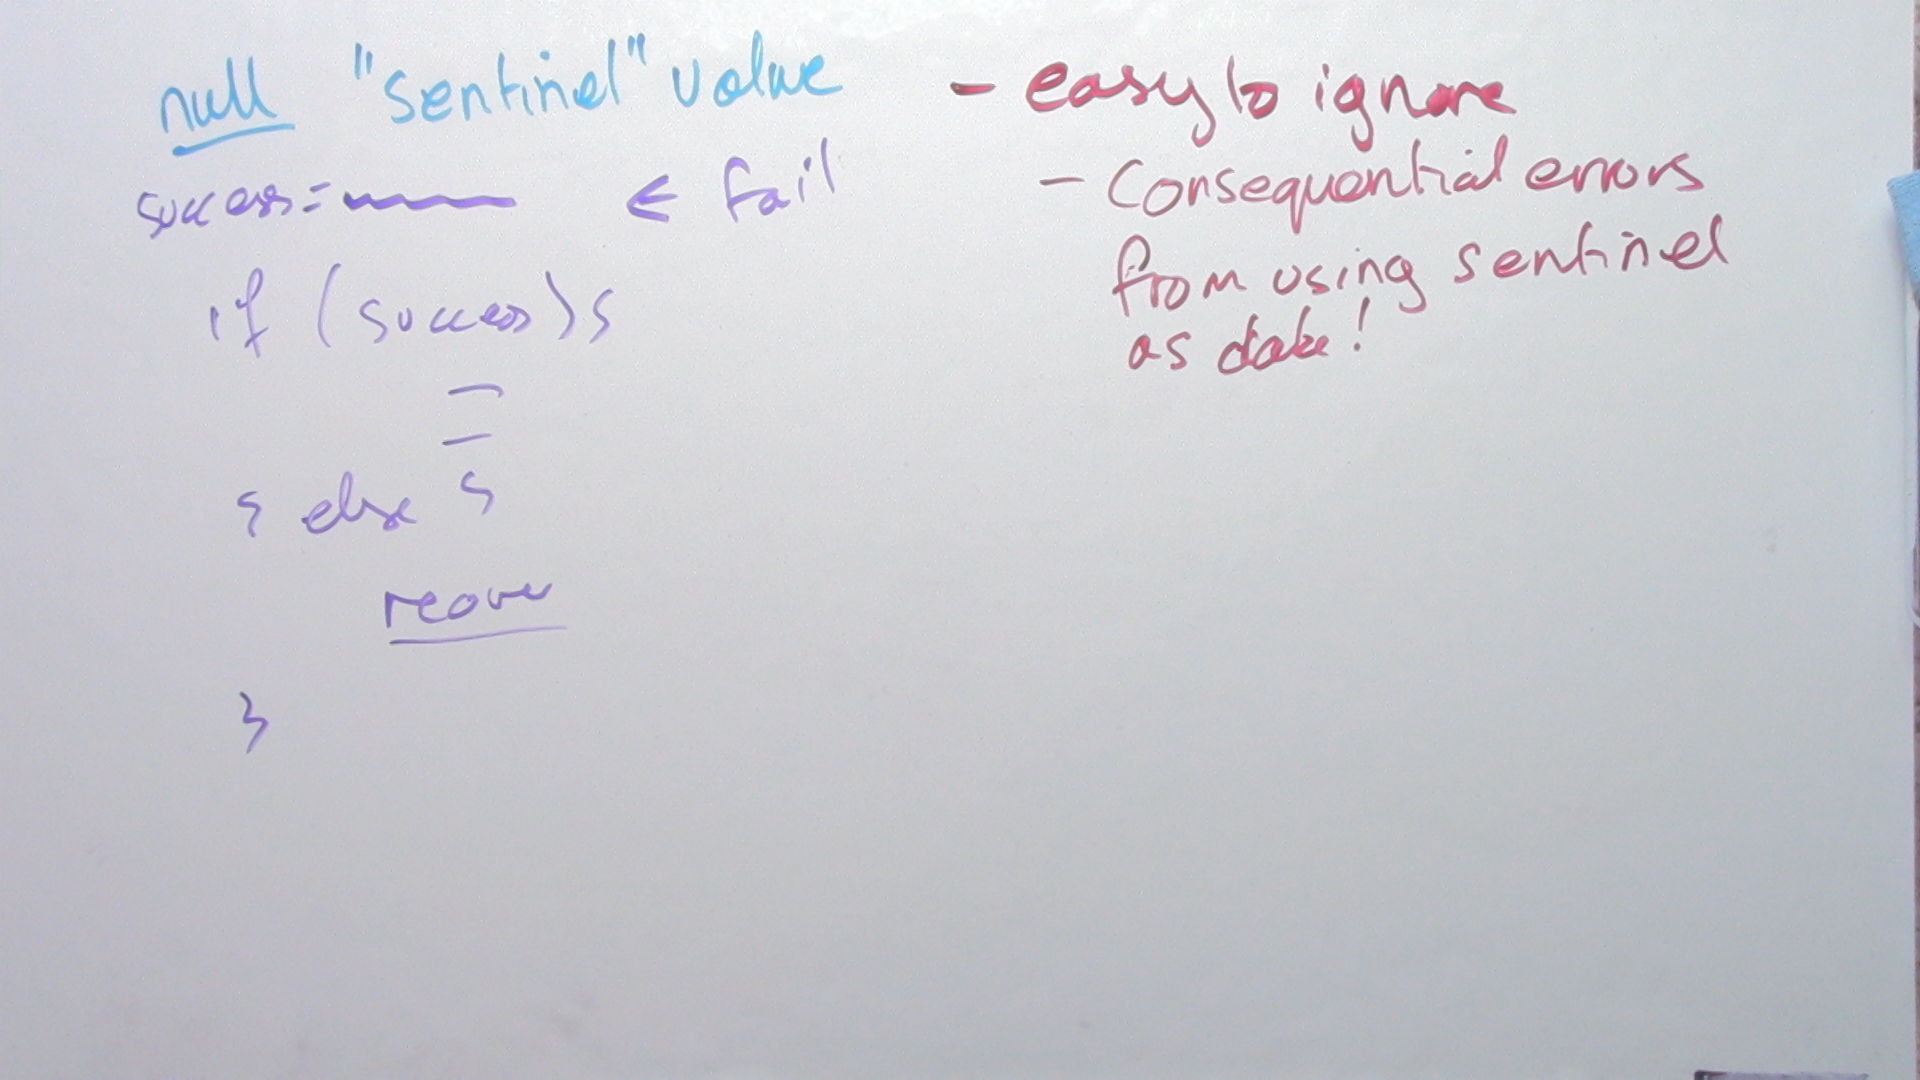 null "sentinel" value
success = ← fail
if (success) {
} else {
recover
}
- easy to ignore
- Consequential errors
from using sentinel
as data!